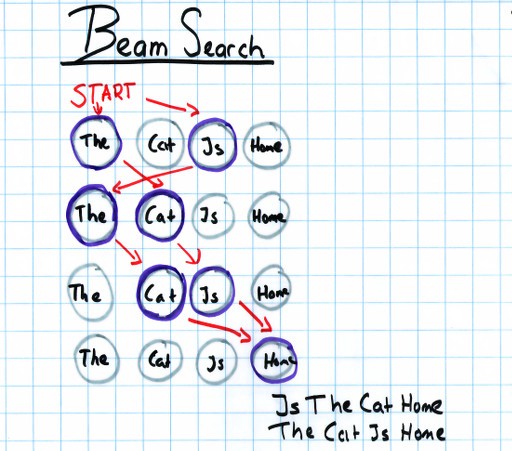 Beam Search
START
The Cat Is Home
The Cat Is Home
The Cat Is Home
The Cat Is Home
Is The Cat Home
The Cat Is Home